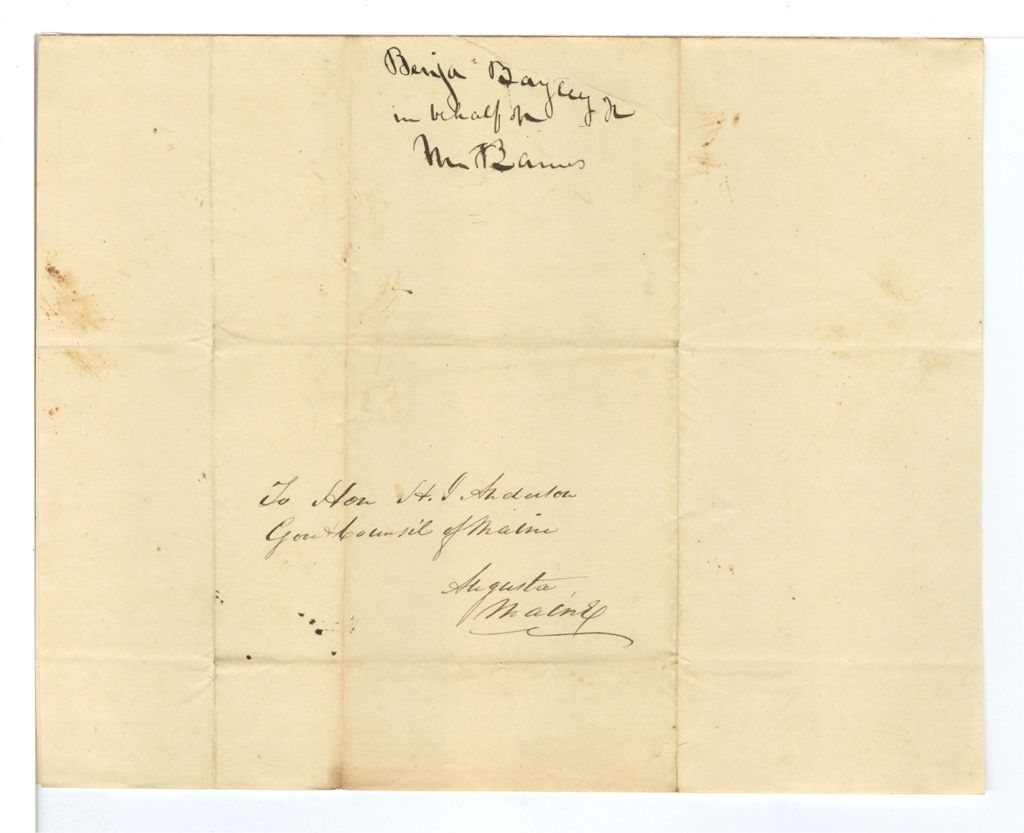 Benja Bayley Jr
in behalf of
Mr Barnes
To Hon H. J Anderson
Gov & Counsil of Maine
Augusta
Maine